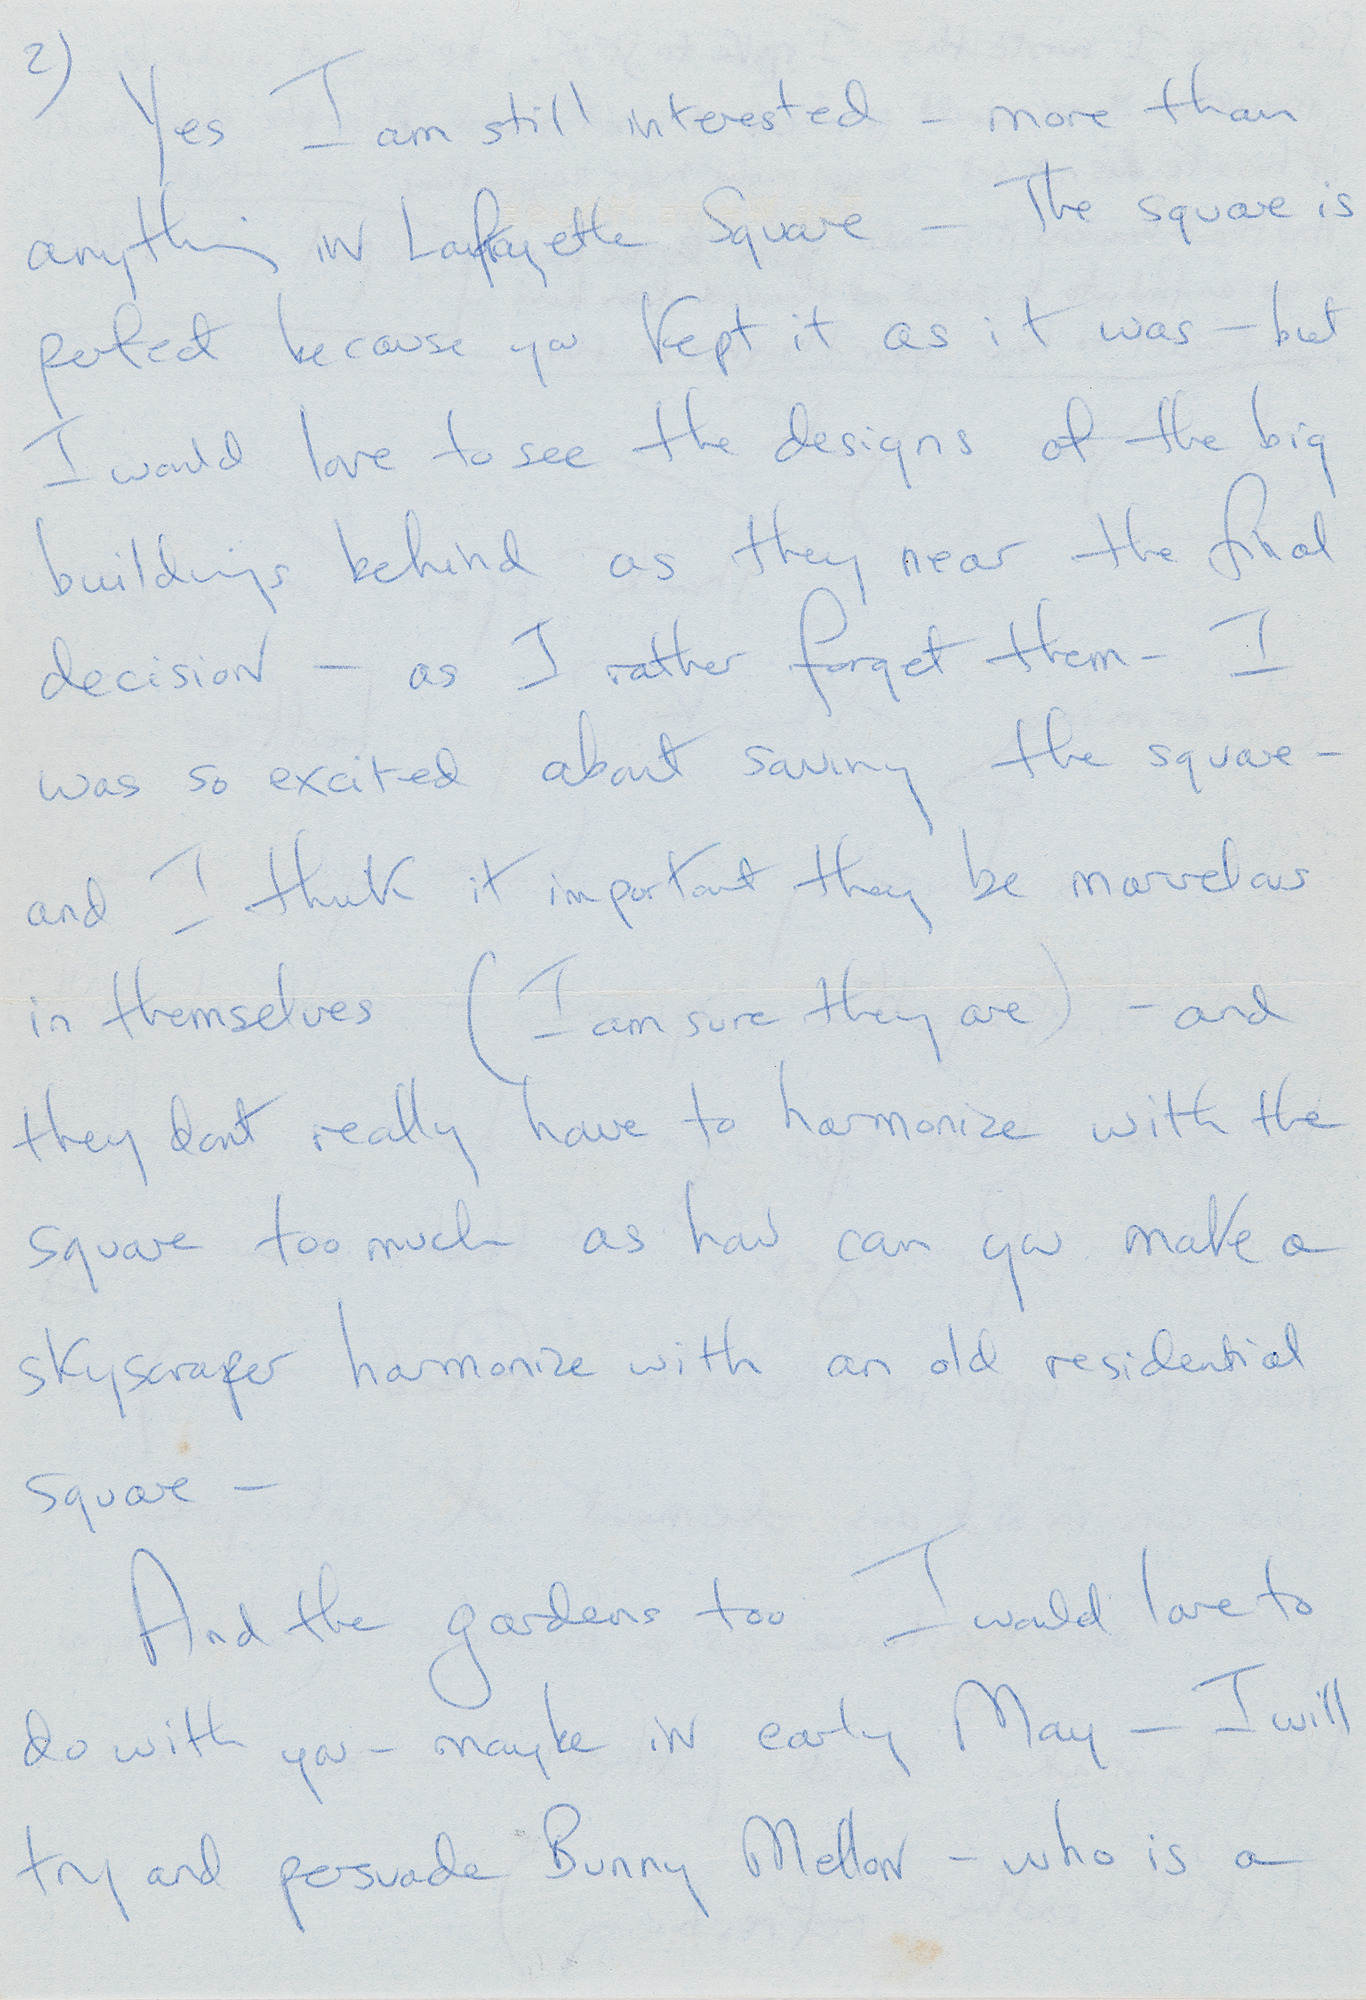 2)
Yes I am still interested – more than
anything in Laffayette Square – The square is
perfect because you kept it as it was – but
I would love to see the designs of the big
buildings behind as they near the final
decision – as I rather forget them – I
was so excited about saving the square –
and I think it important they be marvelous
in themselves (I am sure they are) – and
they dont really have to harmonize with the
square too much as how can you make a
skyscraper harmonize with an old residential
square –
And the gardens too I would love to
do with you – maybe in early May – I will
try and persuade Bunny Mellon – who is a